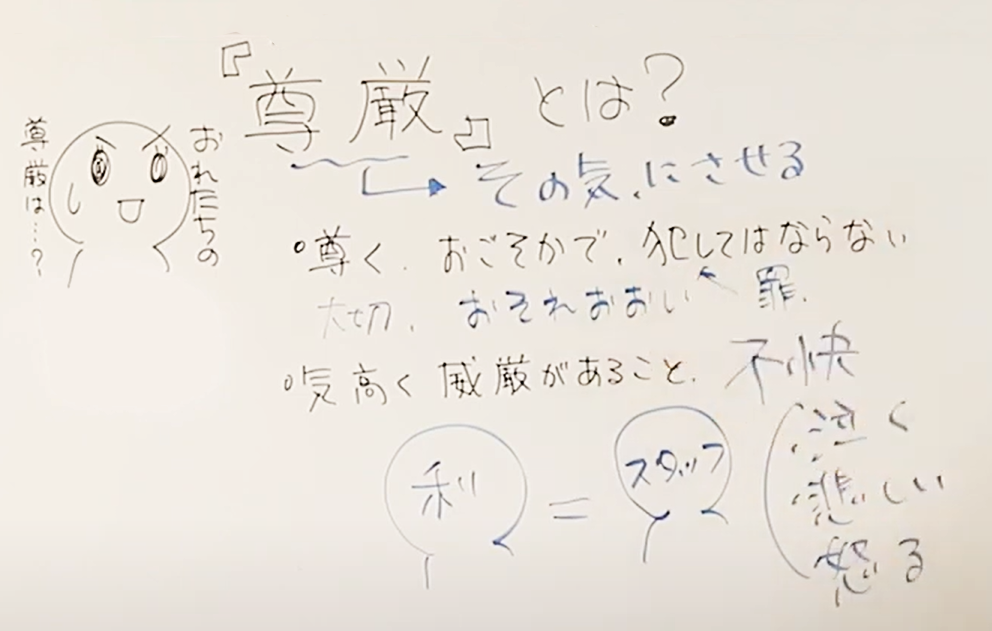 『尊厳』とは?
その気にさせる
おれたちの
尊厳は…?
°尊く、おごそかで、犯してはならない
大切、おそれおおい 罪、
°気高く威厳があること、
不快
泣く
悲しい
怒る
利 = スタッフ